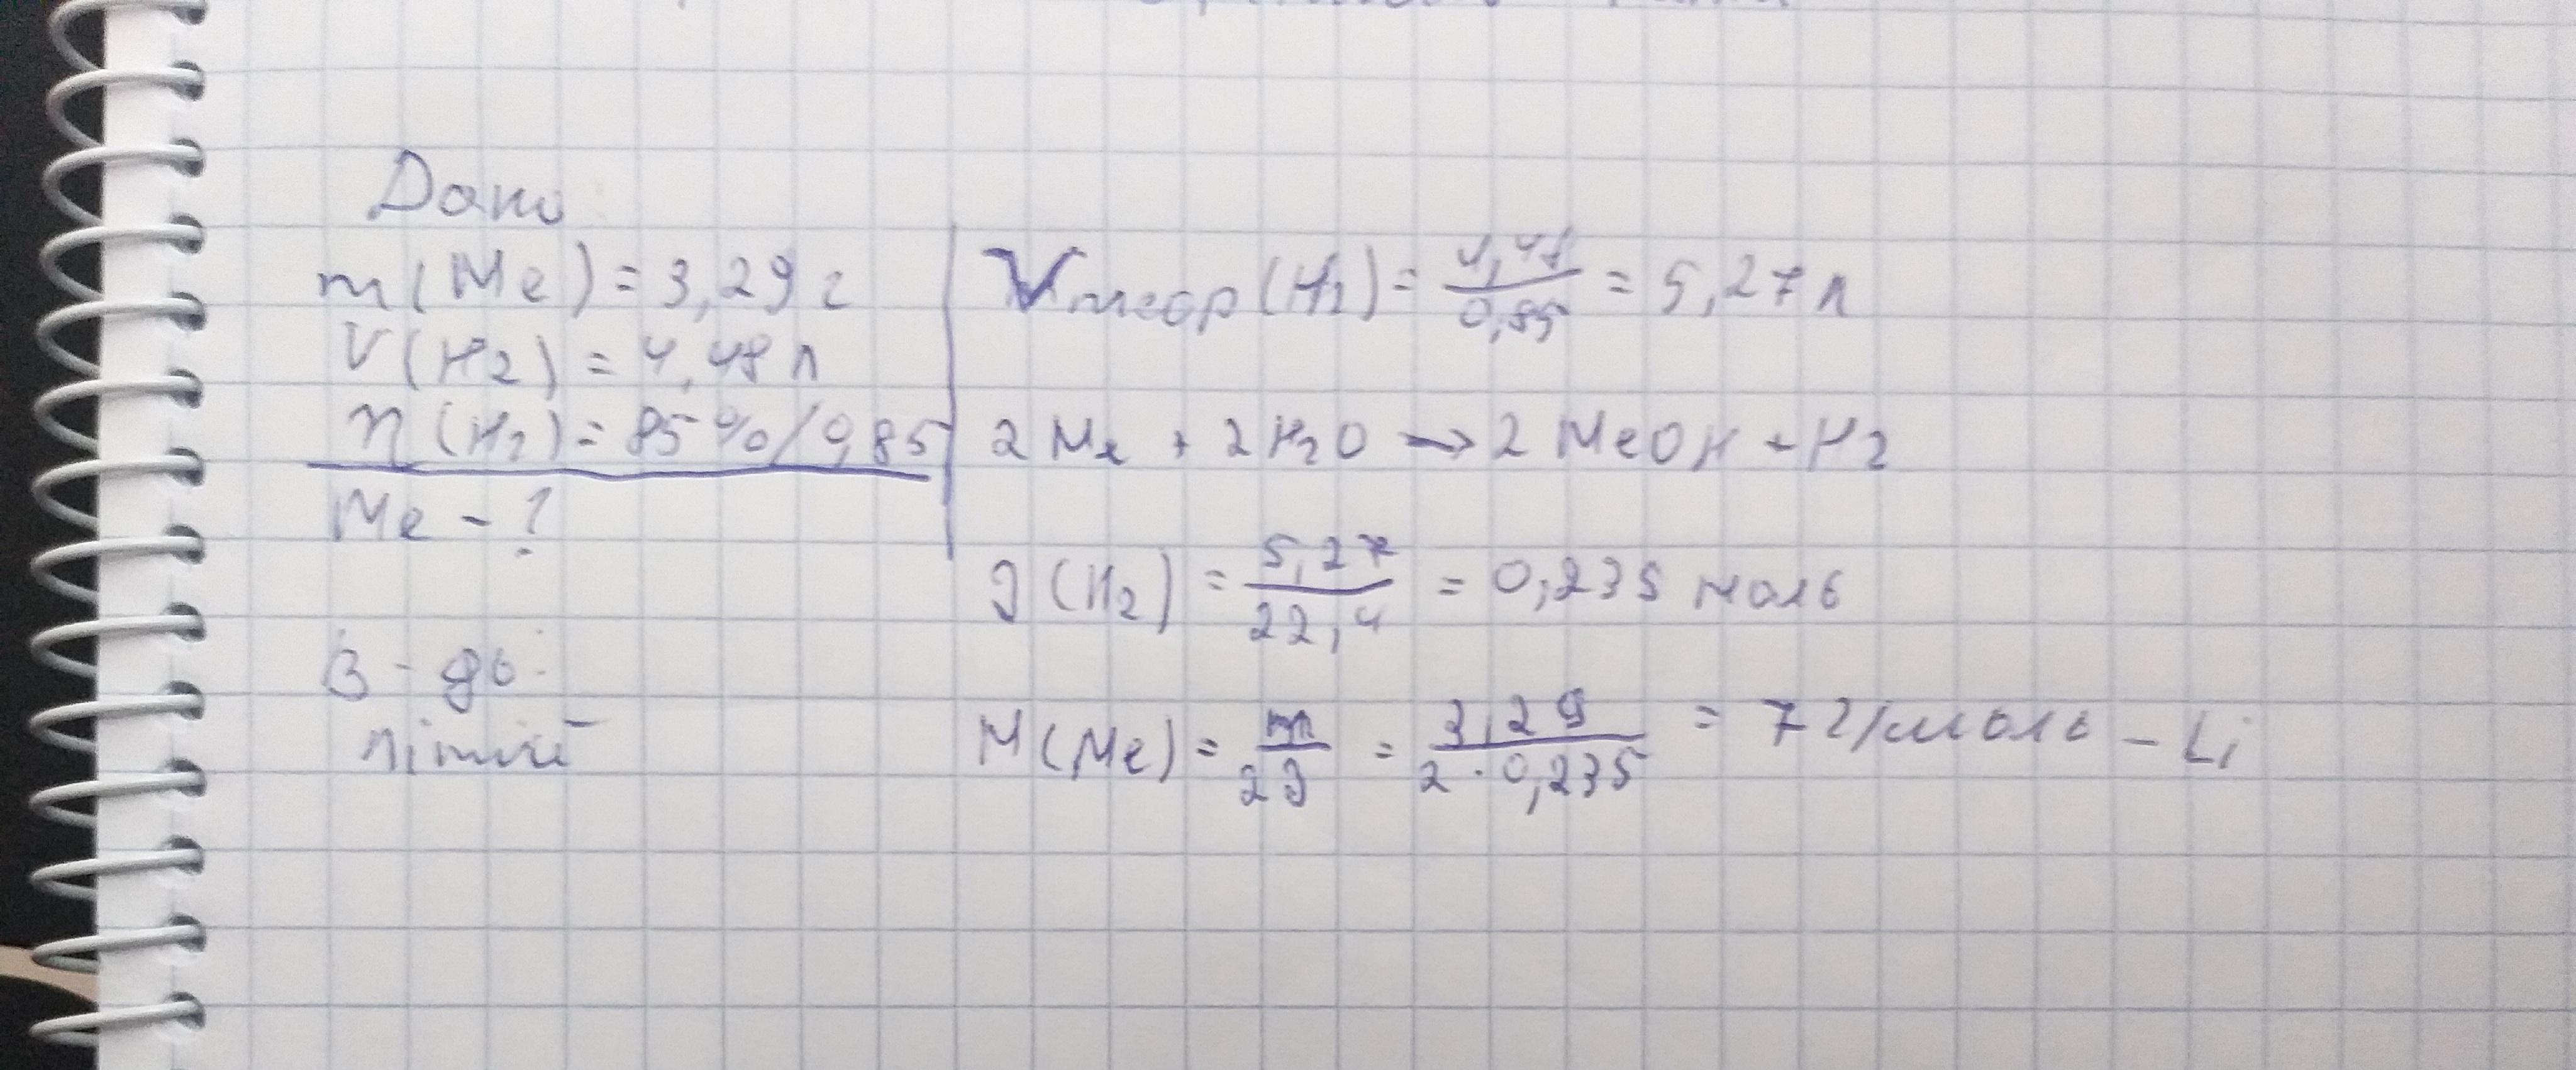 Дано
m(Me) = 3,29 г
V(H2) = 4,48 л
η(H2) = 85%/0,85
Me - ?
В-дь:
літій
Vтеор(H2) = 4,48/0,85 = 5,27 л
2Me + 2H2O → 2MeOH + H2
ν(H2) = 5,27/22,4 = 0,235 моль
M(Me) = m/2ν = 3,29/2·0,235 = 7 г/моль - Li